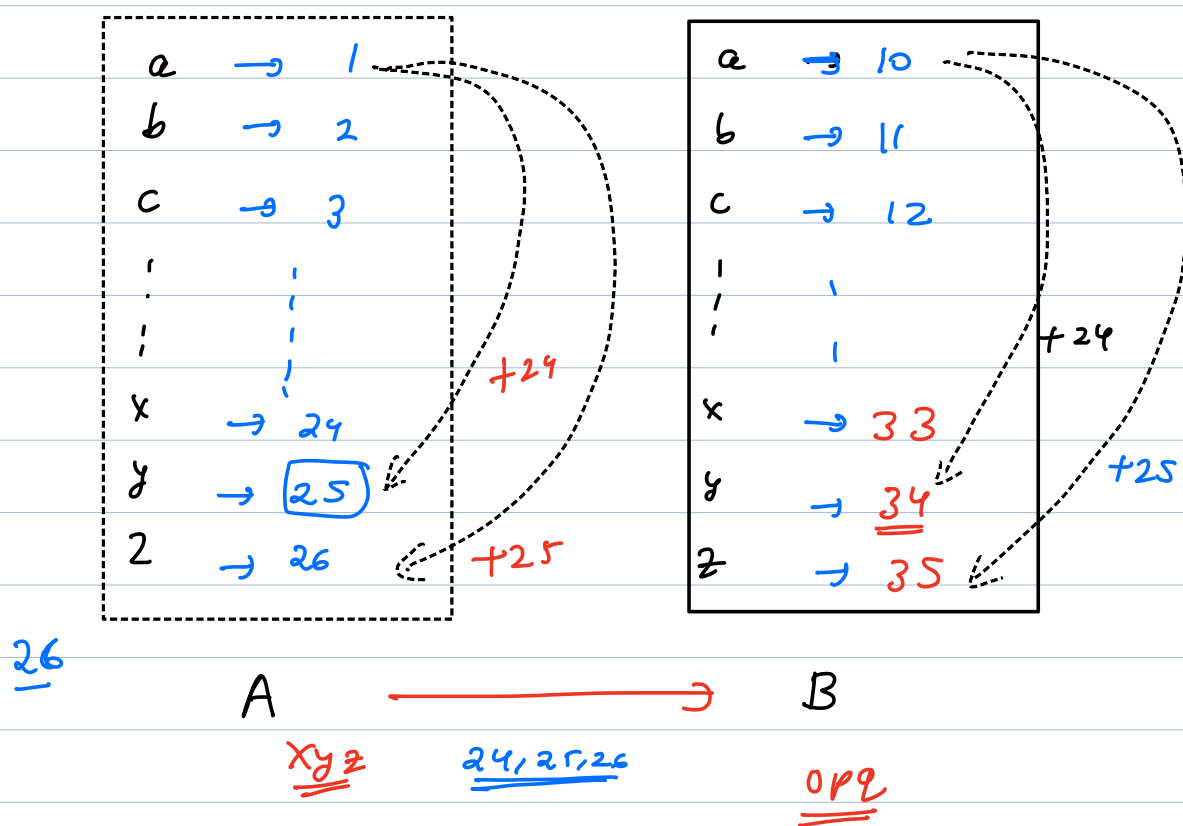 a → 1
b → 2
c → 3
x → 24
y → 25
z → 26
+24
+25
a → 10
b → 11
c → 12
x → 33
y → 34
z → 35
+24
+25
26
A → B
xyz
24, 25, 26
opq